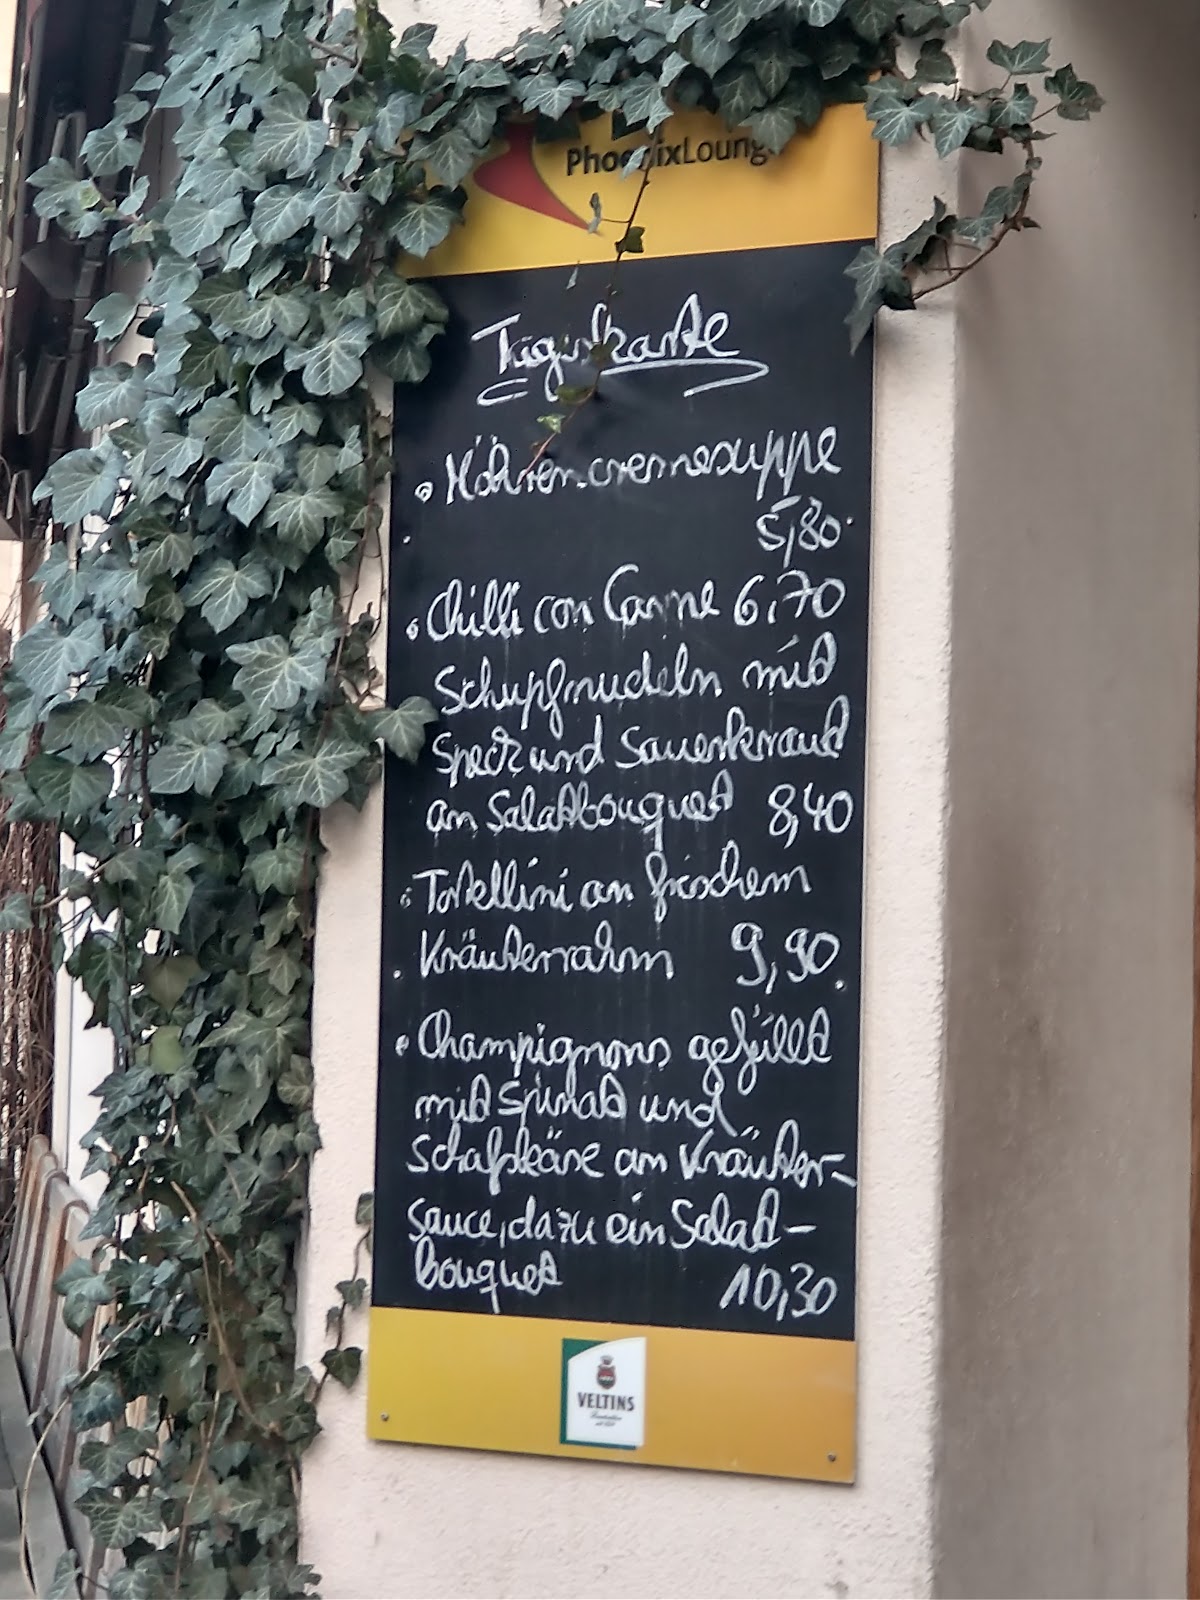 PhoenixLounge
Tageskarte
Möhrencremesuppe
5,80
Chilli con Carne 6,70
Schupfnudeln mit
Speck und Sauerkraut
an Salatbouquet 8,40
Tortellini an frischem
Kräuterrahm 9,90
Champignons gefüllt
mit Spinat und
Schafskäse an Kräuter-
sauce, dazu ein Salat-
bouquet 10,30
VELTINS